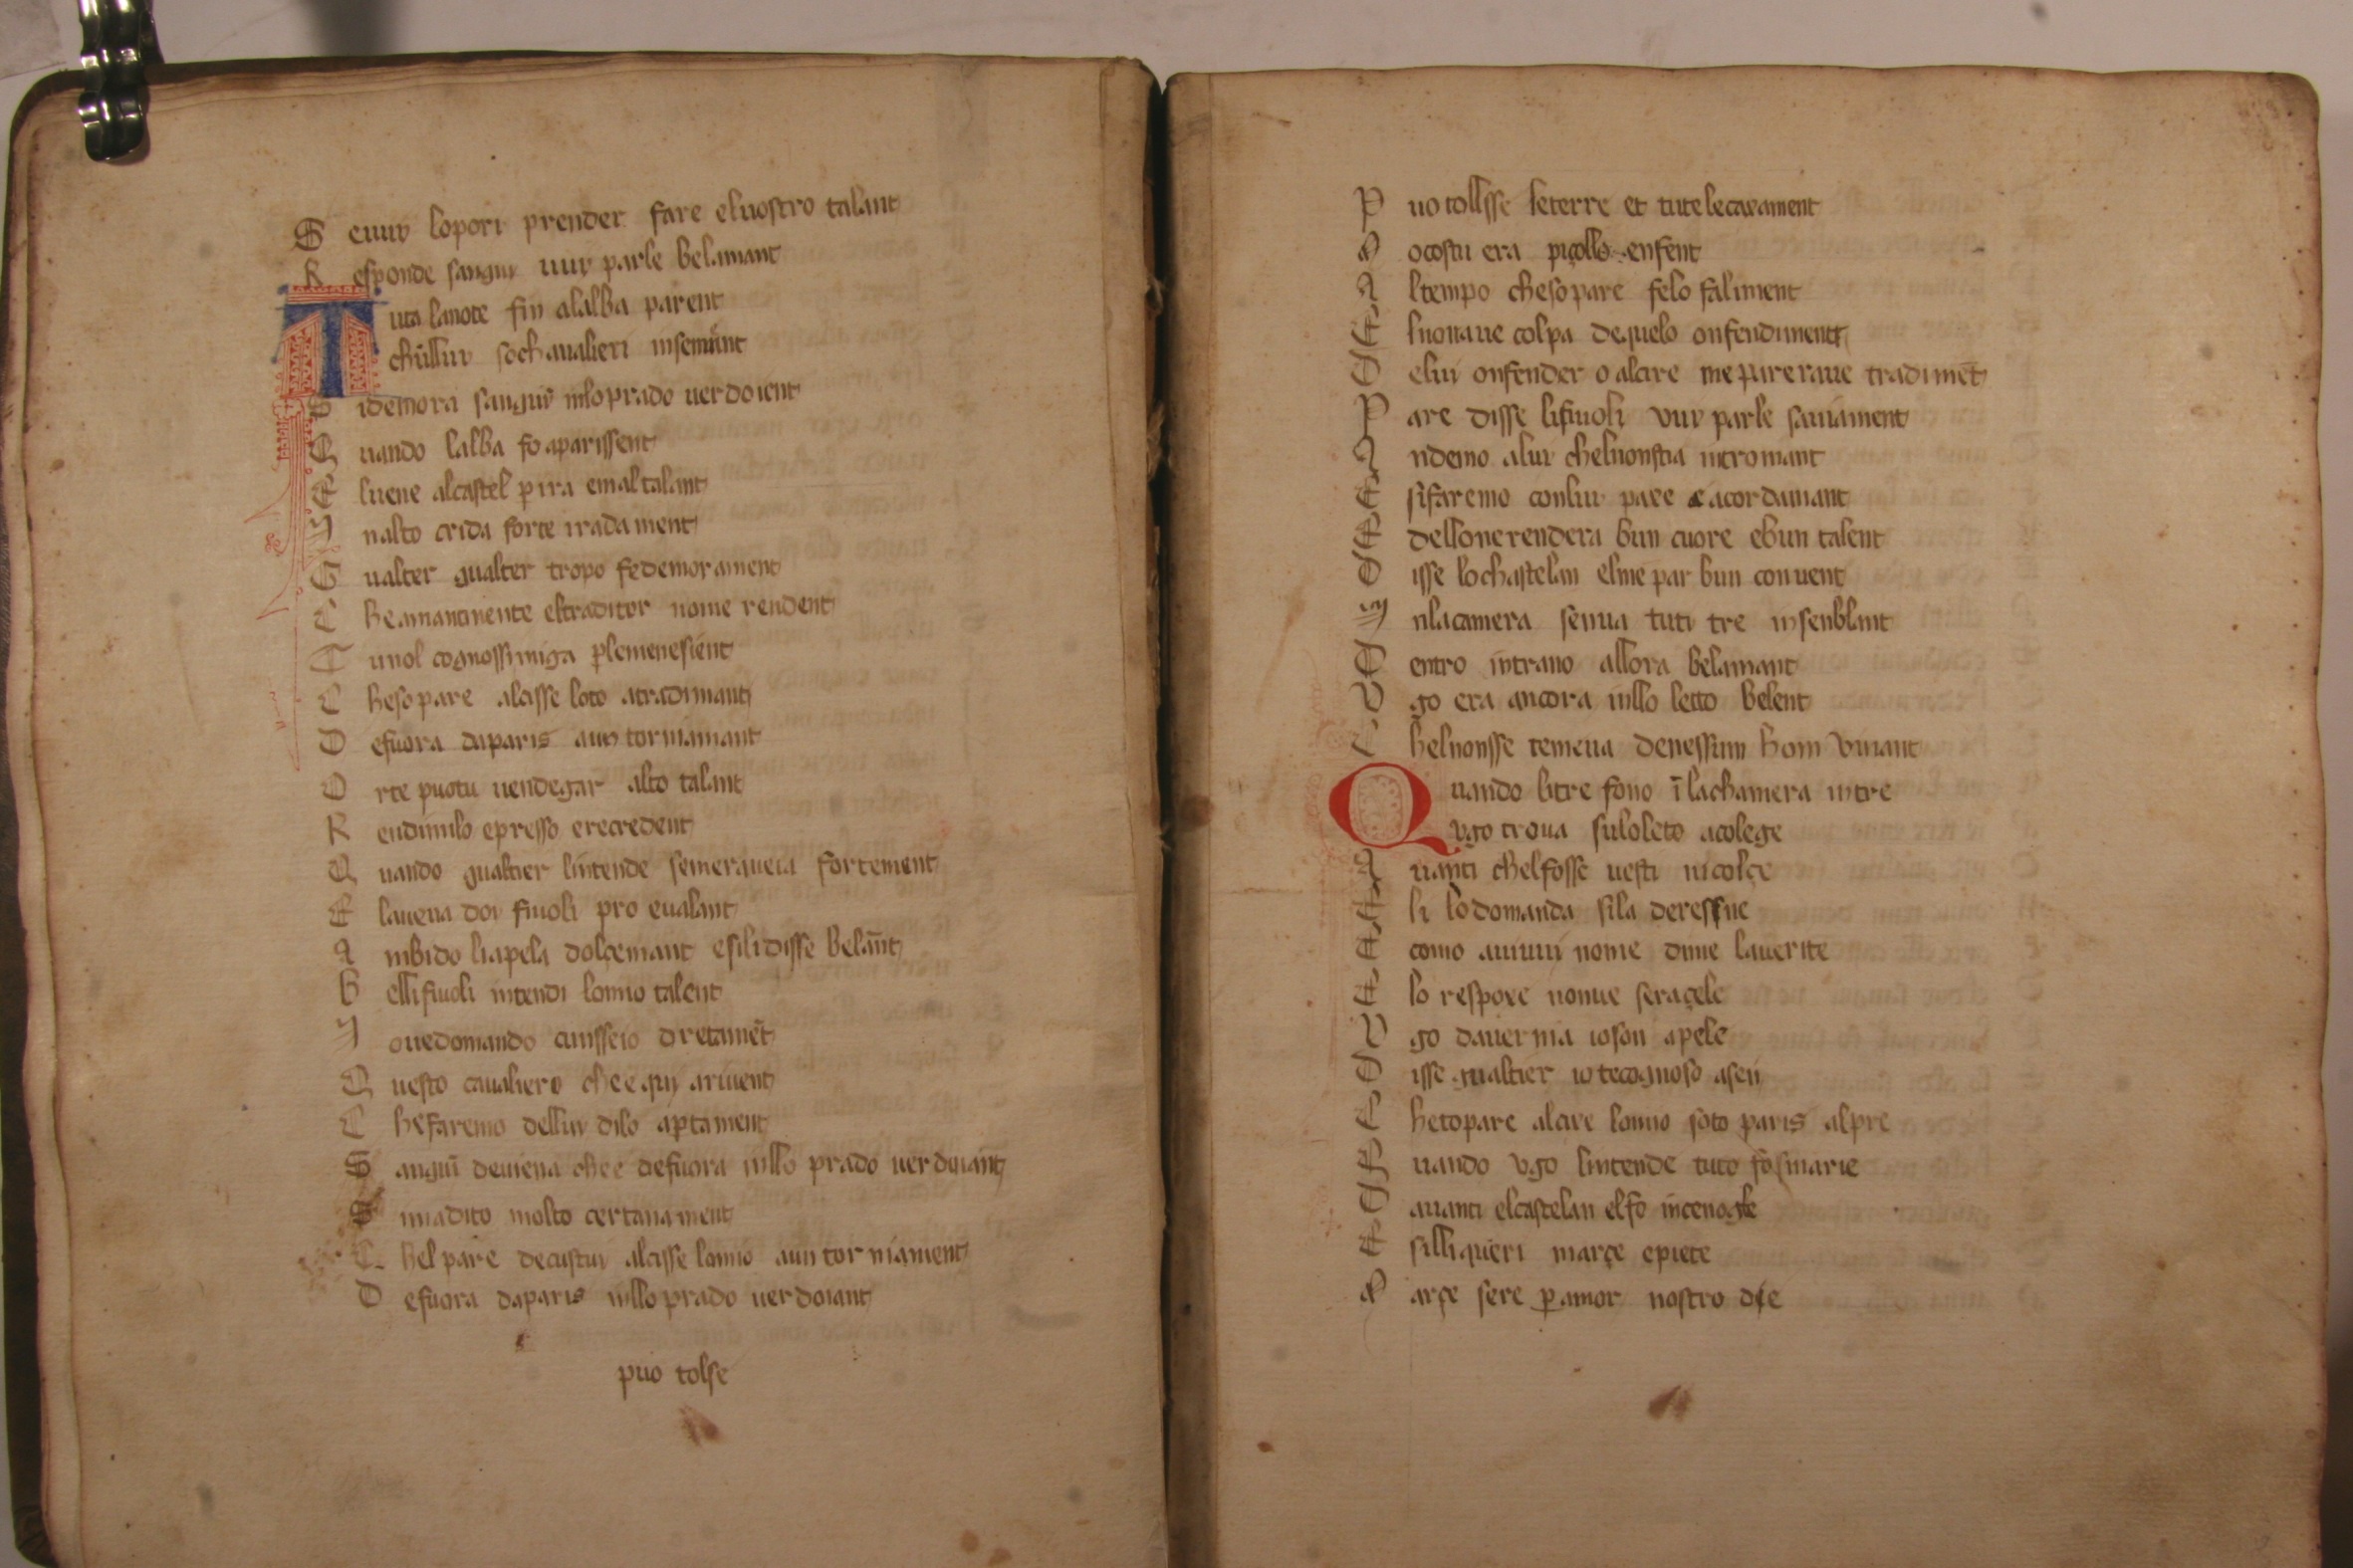 S euuy lopori prender fare eluostro talant
R esponde sanguy uuy parle belamant
T uta lanote fin alalba parent
chullur sochaualieri insemant
S idemora sanguis inloprado uerdoient
Q uando lalba fo aparissent
E luene alcastel p ira emaltalant
I nalto crida forte iradament
G ualter gualter tropo fedemorament
C heamantinente eltraditor nome rendent
T unol cognossimiga plemenesient
C hesopare alcisse loto atradimant
D efuora daparis aun torniamant
O rte puotu uendegar alto talant
R endimilo epresso erecredent
Q uando gualtier lintende semeraueia fortement
E laueua doy fiuoli pro eualant
A mbido liapela dolçemant esilidisse belam̄t
B elli fiuoli intendi lomio talent
I ouedomando cunsseio dretamēt
Q uesto caualiero chee quy ariuent
C hefaremo delluy dilo aptament
S anguī deuiena chee defuora inllo prado uerdoiant
miadito molto certanament
C hel pare decustuy alcisse lomio aun torniament
D efuora daparis inllo prado uerdoiant
puo tolse
P uo tollsse leterre et tute lecaxament
ocostu era piçollo enfent
A ltempo chesopare felo faliment
E lnonaue colpa dequelo onfendiment
D eluy onfender o alcire me pareraue tradimēt
P are disse lifiuoli vuy parle sauiament
A ndemo aluy chelnonstia intromant
E sifaremo conluy paxe e acordamant
E dellonerendera bun cuore ebun talent
D isse lochastelan elme par bun conuent
I nlacamera senua tuti tre insenblant
D entro intrano allora belamant
V go era ancora inllo letto belent
C helnonsse temeua denessun hom viuant
Q uando litre fono ī lachamera intre
vgo troua suloleto acolege
A uanti chelfosse uesti nicolçe
E li lo domanda sila deresfne
E como auiuu nome dime lauerite
E lo respoxe nonue seraçele
V go dauernia ioson apele
D isse gualtier io tecognoso aseu
C hetopare alcixe lomio soto paris alpre
Q uando vgo lintende tuto fosmarie
D auanti elcastelan elfo incenogle
E silli queri març̧e epiete
M arçe sere p amor nostro die